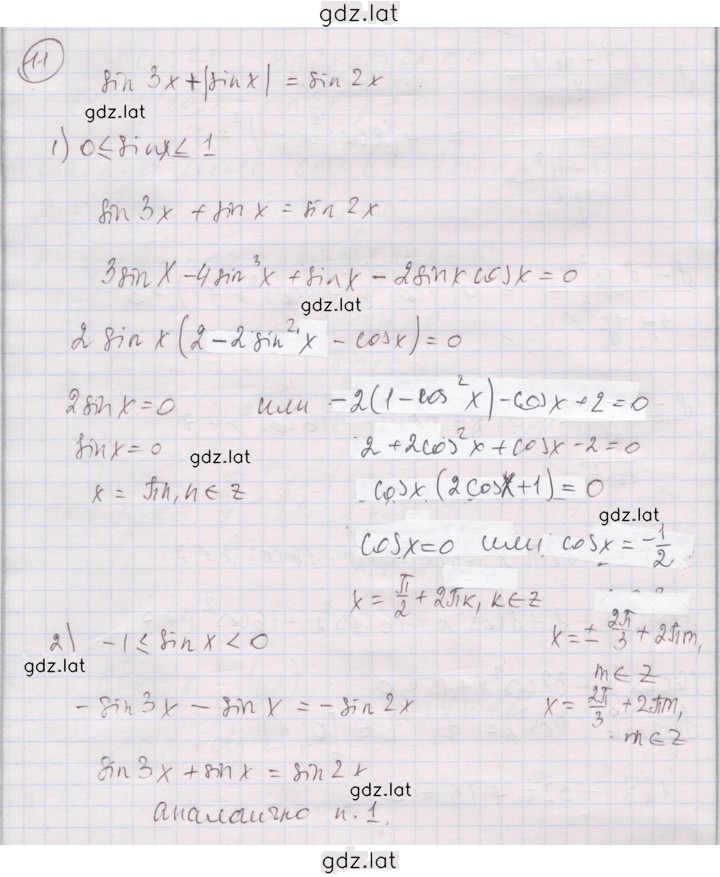 gdz.lat
11
sin 3x + |sin x| = sin 2x
gdz.lat
1) 0 ≤ sin x ≤ 1
sin 3x + sin x = sin 2x
3 sin x - 4 sin³x + sin x - 2 sin x cos x = 0
gdz.lat
2 sin x (2 - 2 sin²x - cos x) = 0
2 sin x = 0 или -2(1 - cos²x) - cos x + 2 = 0
sin x = 0 gdz.lat 2 + 2cos²x + cos x - 2 = 0
x = πn, n ∈ z cos x (2cos x + 1) = 0
gdz.lat
cos x = 0 или cos x = -1/2
x = π/2 + 2πk, k ∈ z
x = ± 2π/3 + 2πm,
m ∈ Z
2) -1 ≤ sin x < 0
gdz.lat
x = 2π/3 + 2πm,
m ∈ Z
- sin 3x - sin x = - sin 2x
sin 3x + sin x = sin 2x
gdz.lat
аналогично п. 1.
gdz.lat